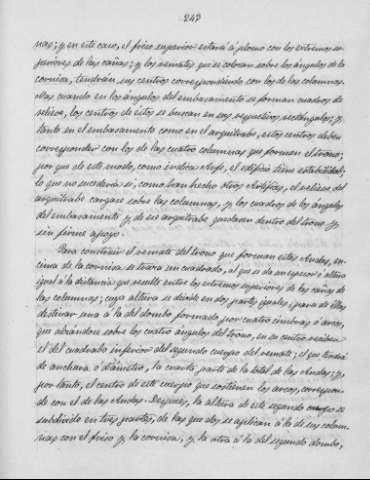 243
nas; y en este caso, el friso superior estará á plomo con los extremos su-
periores de las cañas; y los remates que se colocan sobre los ángulos de la
cornisa, tendrán sus centros correspondiendo con los de las columnas.
Mas cuando en los ángulos del embasamento se forman cuadros de
relieve, los centros de estos se buscan en sus respectivos rectángulos; y,
tanto en el embasamento como en el arquitrabe, estos centros deben
corresponder con los de las cuatro columnas que formen el trono;
por que de este modo, como indica Arfe, el edificio tiene estabilidad;
lo que no sucedería si, como han hecho otros Artistas, el relieve del
arquitrabe cargase sobre las columnas, y los cuadros de los ángulos
del embasamento y de su arquitrabe quedasen dentro del trono y
sin firme apoyo.
Para construir el remate del trono que forman estas Andas, en-
cima de la cornisa se traza un cuadrado, al que se da un espesor ó altura
igual á la distancia que resulte entre los extremos superiores de las cañas de
las columnas; cuya altura se divide en dos partes iguales, para de ellas
destinar una á la del dombo formado por cuatro cimbras ó arcos,
que abriéndose sobre los cuatro ángulos del trono, en su centro reciben
el del cuadrado inferior del segundo cuerpo del remate; el que tendrá
de anchura ó diámetro, la cuarta parte de la total de las Andas; y,
por tanto, el centro de este cuerpo que sostienen los arcos, correspon-
de con el de las Andas. Después, la altura de este segundo cuerpo se
subdivide en tres partes, de las que dos se aplican á la de sus colum-
nas con el friso y la cornisa; y la otra á la del segundo dombo,